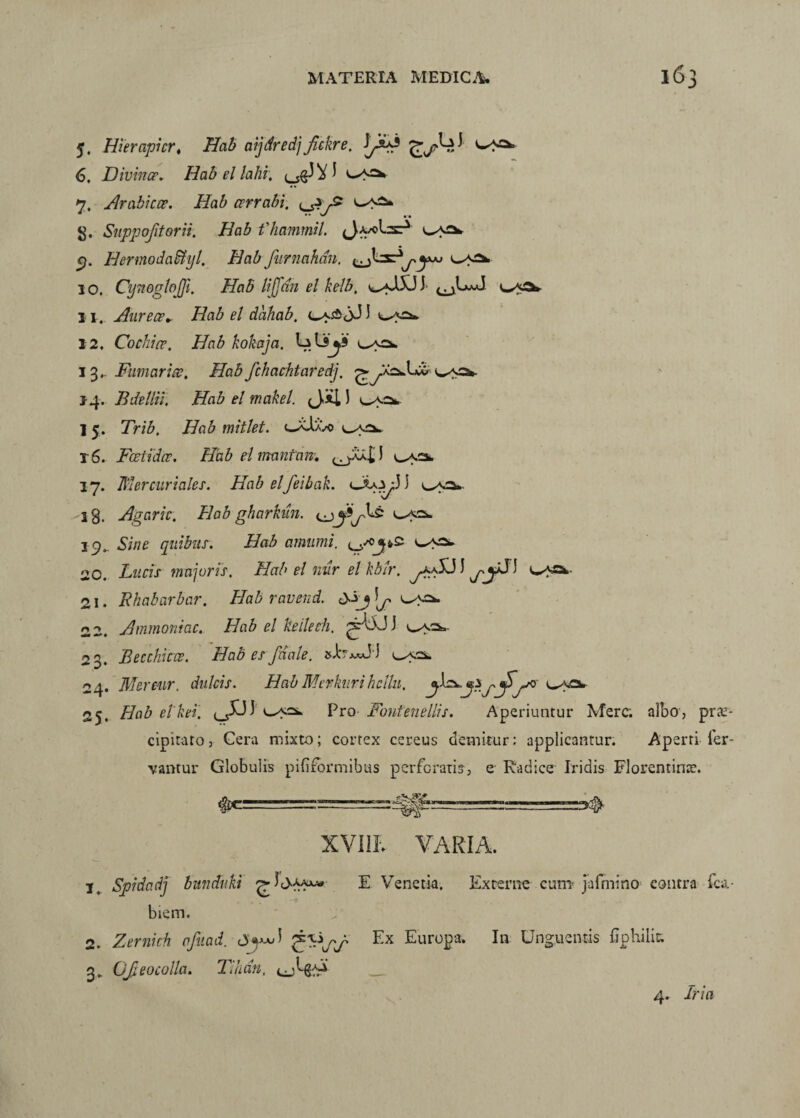 MATERIA MEDICA. 163
5. Hierapicr. Hab aijdredj fickre.
6. Divinæ. Hab el lahi. حب الاهي
7. Arabicæ. Hab ærrabi. حب عربي
8. Suppofitorii. Hab t'hammil.
9. Hermodactyl. Hab furnahân.
10. Cynogloffi. Hab liffân el kelb. حب لسان الكلب
11. Aureæ. Hab el dahab. حب الذهب
12. Cochiæ. Hab kokaja. حب قوقايا
13. Fumariæ. Hab fchachtaredj.
14. Bdellii. Hab el makel. حب المقل
15. Trib. Hab mitlet. حب
16. Fœtidæ. Hab el mantan. حب المنتن
17. Mercuriales. Hab el feibak. حب الزيبق
18. Agaric. Hab gharkûn. حب غارقون
19. Sine quibus. Hab amumi. حب عمومي
20. Lucis majoris. Hab el nûr el kbîr. حب النور الكبير
21. Rhabarbar. Hab ravend. حب راوند
22. Ammoniac. Hab el keilech. حب الكلخ
23. Becchicæ. Hab es fäale. حب
24. Mercur. dulcis. Hab Merkuri hellu. حب مركوري حلو
25. Hab el kei. حب الكي Pro Fontenellis. Aperiuntur Merc. albo, præ-
cipitato, Cera mixto; cortex cereus demitur: applicantur. Aperti fer-
vantur Globulis pififormibus perforatis, e Radice Iridis Florentinæ.
XVIII. VARIA.
1. Spidadj bunduki E Venetia. Externe cum jafmino contra fca-
biem.
2. Zernich afuad. زرنيخ اسود Ex Europa. In Unguentis fiphilit.
3. Ofteocolla. Tihân. تيهان
4. Iria